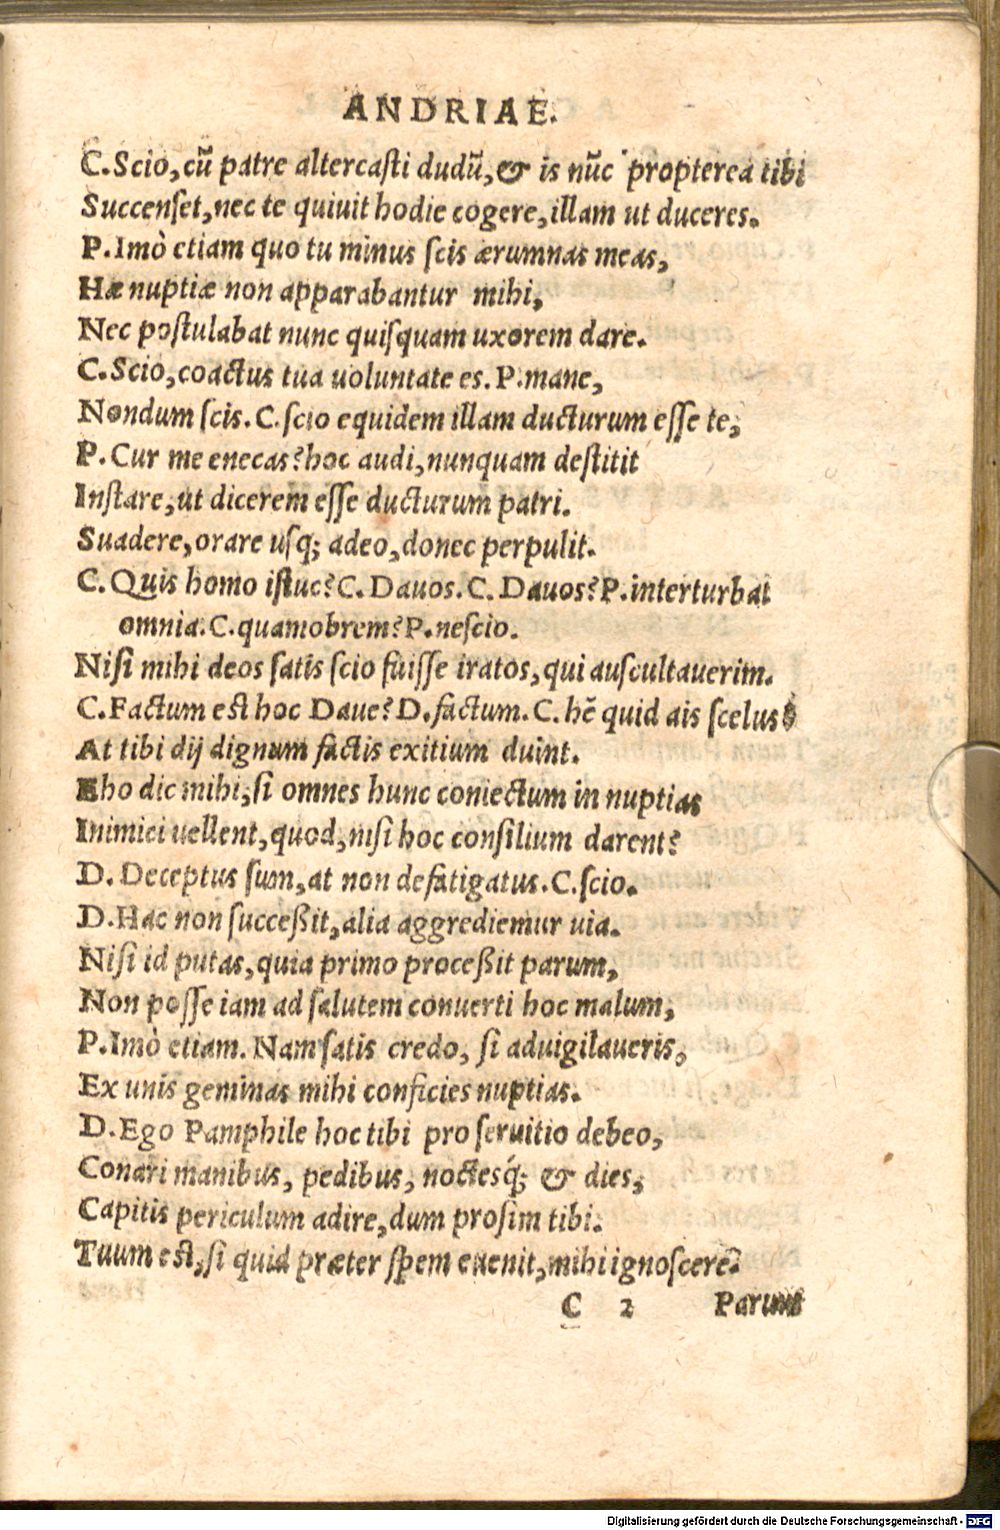 ANDRIAE.
C. Scio, cũ patre altercasti dudũ, & is nũc propterea tibi
Succenset, nec te quiuit hodie cogere, illam ut duceres.
P. Imò etiam quo tu minus scis ærumnas meas,
Hæ nuptiæ non apparabantur mihi,
Nec postulabat nunc quisquam uxorem dare.
C. Scio, coactus tua uoluntate es. P. mane,
Nondum scis. C. scio equidem illam ducturum esse te,
P. Cur me enecas? hoc audi, nunquam destitit
Instare, ut dicerem esse ducturum patri.
Suadere, orare usq; adeo, donec perpulit.
C. Quis homo istuc? C. Dauos. C. Dauos? P. interturbat
omnia. C. quamobrem? P. nescio.
Nisi mihi deos satis scio fuisse iratos, qui auscultauerim.
C. Factum est hoc Daue? D. factum. C. hẽ quid ais scelus?
At tibi dij dignum factis exitium duint.
Eho dic mihi, si omnes hunc coniectum in nuptias
Inimici uellent, quod, nisi hoc consilium darent?
D. Deceptus sum, at non defatigatus. C. scio.
D. Hac non succeßit, alia aggrediemur uia.
Nisi id putas, quia primo proceßit parum,
Non posse iam ad salutem conuerti hoc malum,
P. Imò etiam. Nam satis credo, si aduigilaueris,
Ex unis geminas mihi conficies nuptias.
D. Ego Pamphile hoc tibi pro seruitio debeo,
Conari manibus, pedibus, noctesq́; & dies,
Capitis periculum adire, dum prosim tibi.
Tuum est, si quid præter spem euenit, mihi ignoscere.
C 2 Parum
Digitalisierung gefördert durch die Deutsche Forschungsgemeinschaft - DFG